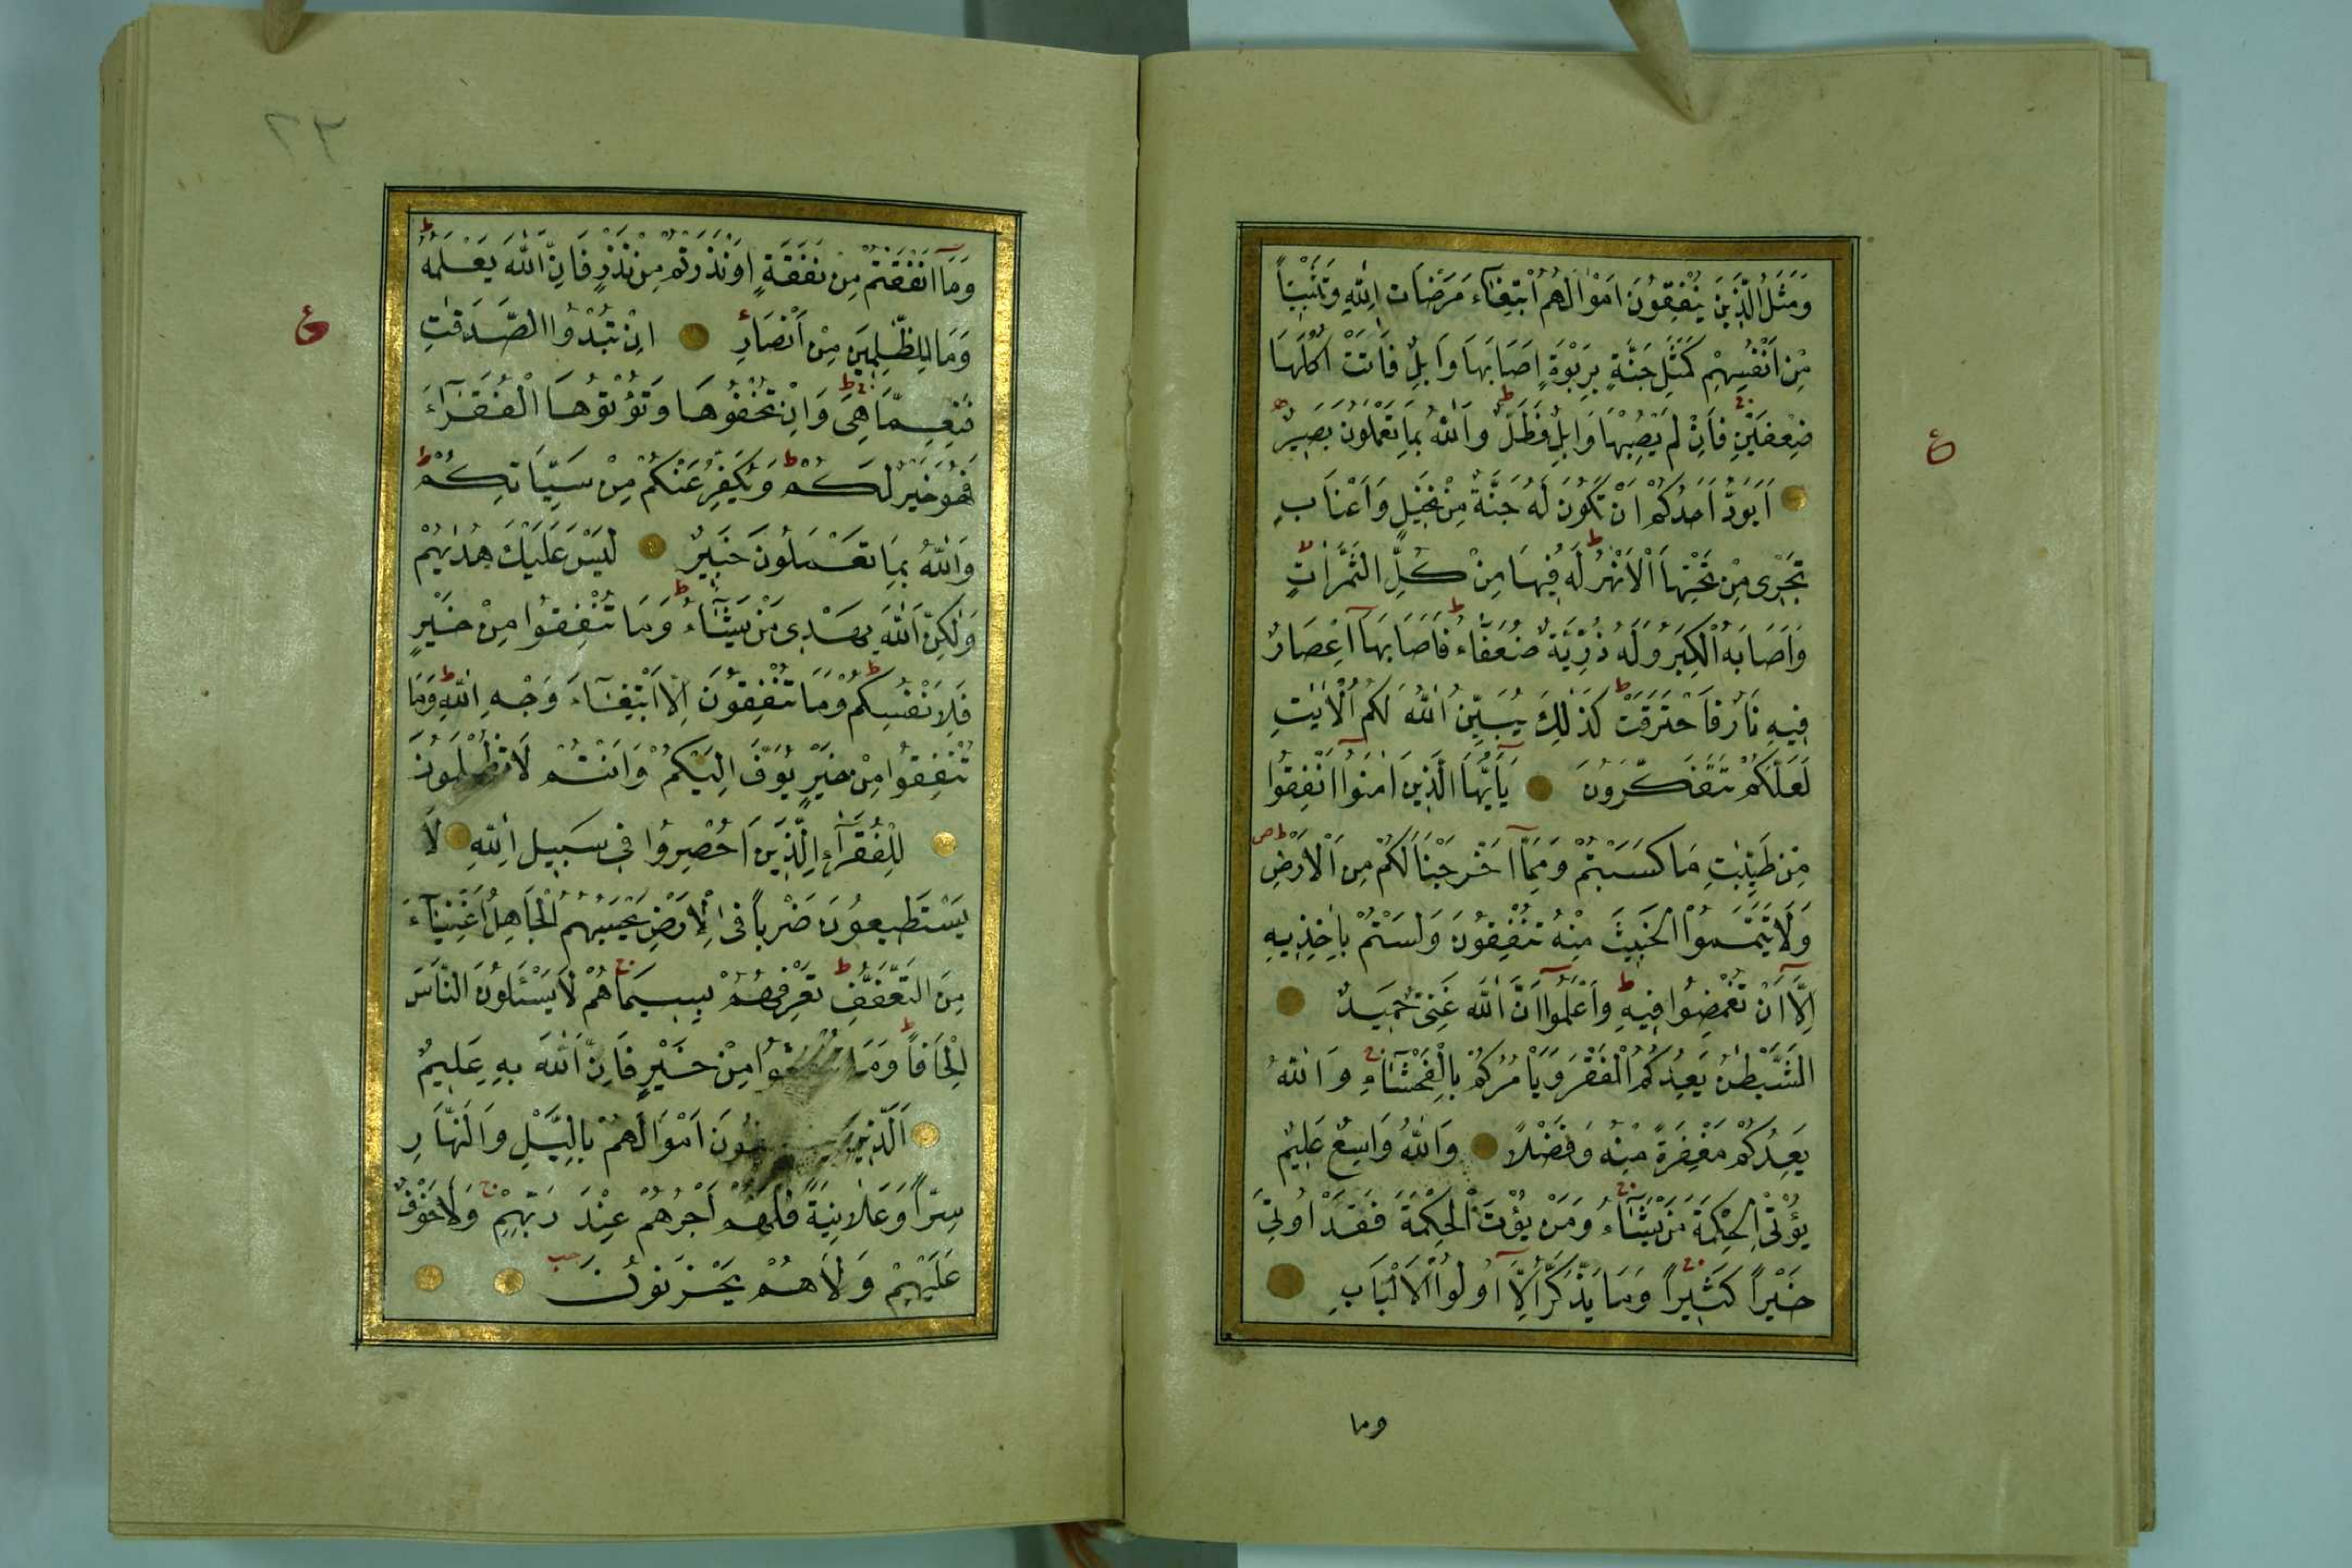 وَمَثَلُ الَّذِينَ يُنْفِقُونَ اَمْوَالَهُمُ ابْتِغَاءَ مَرْضَاتِ اللّٰهِ وَتَثْبِيتاً
مِنْ اَنْفُسِهِمْ كَمَثَلِ جَنَّةٍ بِرَبْوَةٍ اَصَابَهَا وَابِلٌ فَاٰتَتْ اُكُلَهَا
ضِعْفَيْنِ فَاِنْ لَمْ يُصِبْهَا وَابِلٌ فَطَلٌّ وَاللّٰهُ بِمَا تَعْمَلُونَ بَصِيرٌ
اَيَوَدُّ اَحَدُكُمْ اَنْ تَكُونَ لَهُ جَنَّةٌ مِنْ نَخِيلٍ وَاَعْنَابٍ
تَجْرِى مِنْ تَحْتِهَا الْاَنْهٰرُ لَهُ فِيهَا مِنْ كُلِّ الثَّمَرَاتِ
وَاَصَابَهُ الْكِبَرُ وَلَهُ ذُرِّيَّةٌ ضُعَفَاءُ فَاَصَابَهَا اِعْصَارٌ
فِيهِ نَارٌ فَاحْتَرَقَتْ كَذٰلِكَ يُبَيِّنُ اللّٰهُ لَكُمُ الْاٰيٰتِ
لَعَلَّكُمْ تَتَفَكَّرُونَ يَاَيُّهَا الَّذِينَ اٰمَنُوا اَنْفِقُوا
مِنْ طَيِّبٰتِ مَا كَسَبْتُمْ وَمِمَّا اَخْرَجْنَا لَكُمْ مِنَ الْاَرْضِ
وَلَا تَيَمَّمُوا الْخَبِيثَ مِنْهُ تُنْفِقُونَ وَلَسْتُمْ بِاٰخِذِيهِ
اِلَّا اَنْ تُغْمِضُوا فِيهِ وَاعْلَمُوا اَنَّ اللّٰهَ غَنِىٌّ حَمِيدٌ
الشَّيْطٰنُ يَعِدُكُمُ الْفَقْرَ وَيَاْمُرُكُمْ بِالْفَحْشَاءِ وَاللّٰهُ
يَعِدُكُمْ مَغْفِرَةً مِنْهُ وَفَضْلًا وَاللّٰهُ وَاسِعٌ عَلِيمٌ
يُؤْتِى الْحِكْمَةَ مَنْ يَشَاءُ وَمَنْ يُؤْتَ الْحِكْمَةَ فَقَدْ اُوتِىَ
خَيْراً كَثِيراً وَمَا يَذَّكَّرُ اِلَّا اُولُوا الْاَلْبَابِ
وما
٢٣
وَمَا اَنْفَقْتُمْ مِنْ نَفَقَةٍ اَوْ نَذَرْتُمْ مِنْ نَذْرٍ فَاِنَّ اللّٰهَ يَعْلَمُهُ
وَمَا لِلظّٰلِمِينَ مِنْ اَنْصَارٍ اِنْ تُبْدُوا الصَّدَقٰتِ
فَنِعِمَّا هِىَ وَاِنْ تُخْفُوهَا وَتُؤْتُوهَا الْفُقَرَاءَ
فَهُوَ خَيْرٌ لَكُمْ وَيُكَفِّرُ عَنْكُمْ مِنْ سَيِّاٰتِكُمْ
وَاللّٰهُ بِمَا تَعْمَلُونَ خَبِيرٌ لَيْسَ عَلَيْكَ هُدٰيهُمْ
وَلٰكِنَّ اللّٰهَ يَهْدِى مَنْ يَشَاءُ وَمَا تُنْفِقُوا مِنْ خَيْرٍ
فَلِاَنْفُسِكُمْ وَمَا تُنْفِقُونَ اِلَّا ابْتِغَاءَ وَجْهِ اللّٰهِ وَمَا
تُنْفِقُوا مِنْ خَيْرٍ يُوَفَّ اِلَيْكُمْ وَاَنْتُمْ لَا تُظْلَمُونَ
لِلْفُقَرَاءِ الَّذِينَ اُحْصِرُوا فِى سَبِيلِ اللّٰهِ لَا
يَسْتَطِيعُونَ ضَرْباً فِى الْاَرْضِ يَحْسَبُهُمُ الْجَاهِلُ اَغْنِيَاءَ
مِنَ التَّعَفُّفِ تَعْرِفُهُمْ بِسِيمَاهُمْ لَا يَسْئَلُونَ النَّاسَ
اِلْحَافاً وَمَا مِنْ خَيْرٍ فَاِنَّ اللّٰهَ بِهِ عَلِيمٌ
اَلَّذِينَ اَمْوَالَهُمْ بِالَّيْلِ وَالنَّهَارِ
سِرّاً وَعَلَانِيَةً فَلَهُمْ اَجْرُهُمْ عِنْدَ رَبِّهِمْ وَلَا خَوْفٌ
عَلَيْهِمْ وَلَا هُمْ يَحْزَنُونَ